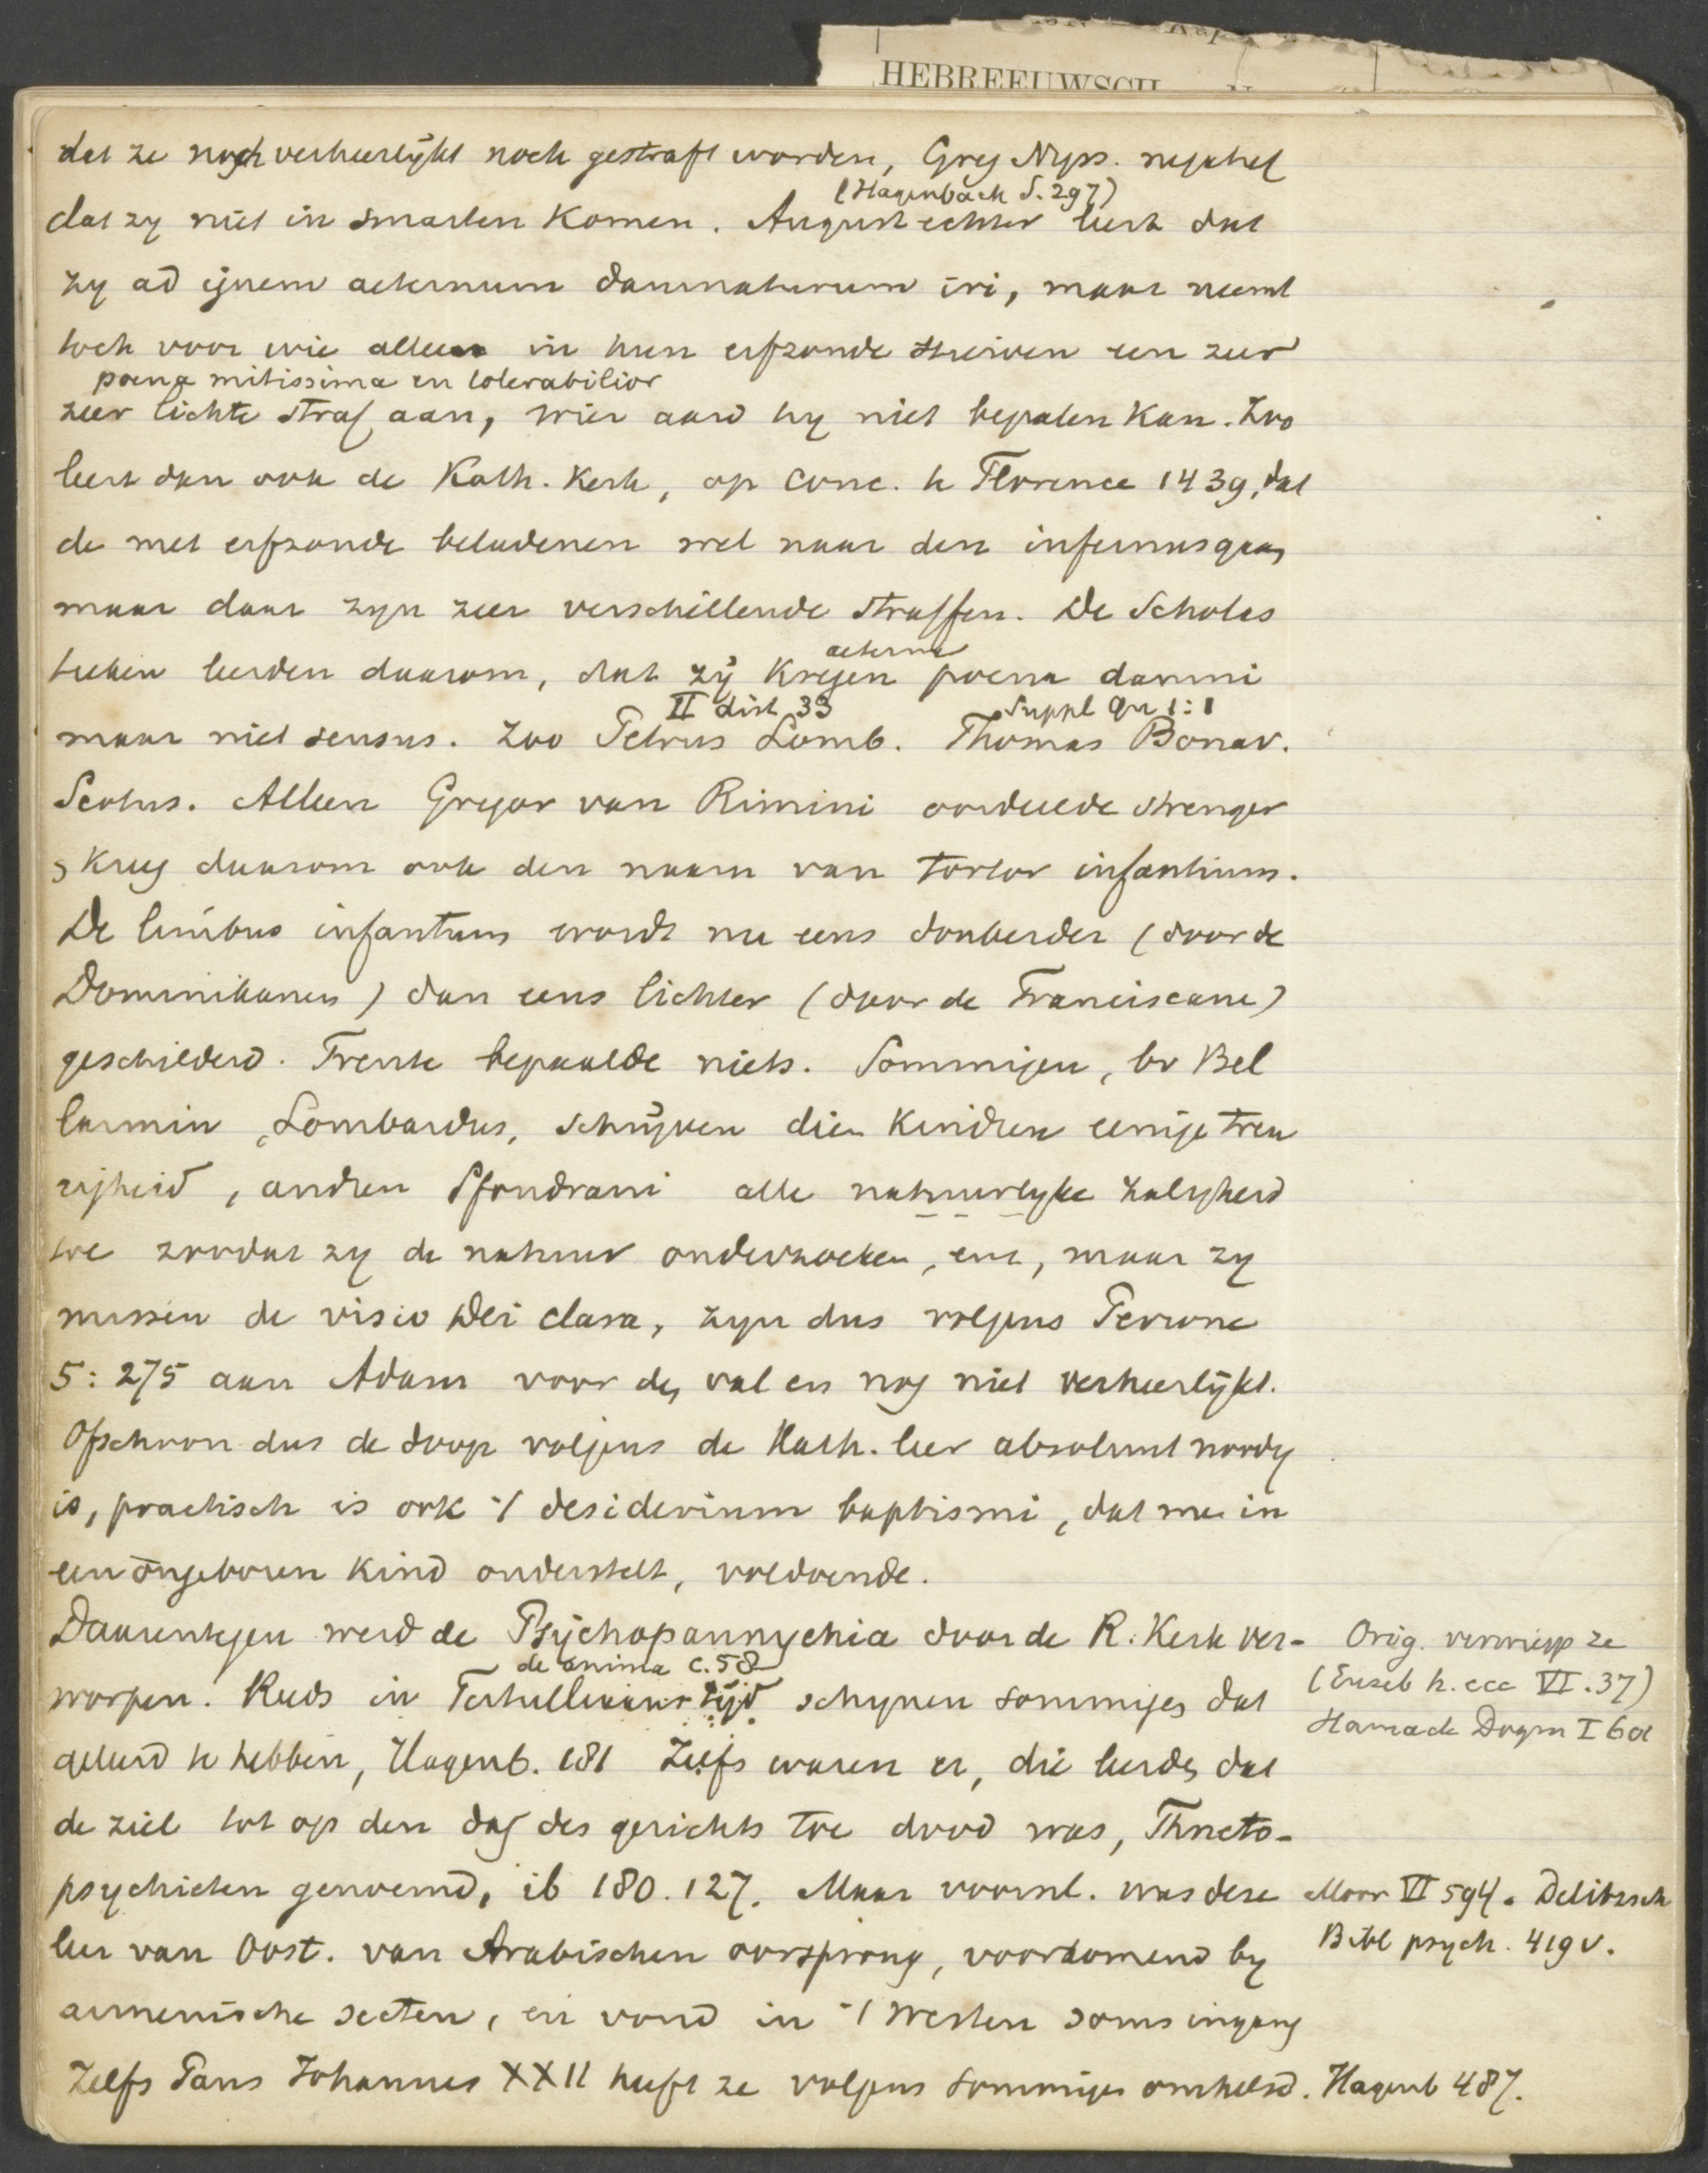 HEBREEUWSCH
dat ze noch verheerlijkt noch gestraft worden, Greg Nyss. zegt het
(Hagenbach S. 297)
dat zy niet in smarten komen. August echter leert dat
zy ad ignem aeternum damnaturum iri, maar neemt
toch voor wie alleen in hun erfzonde sterven een zeer
poena mitissima en tolerabilior
zeer lichte straf aan, wier aard hy niet bepalen kan. Zoo
leert dan ook de Kath. Kerk, op conc. te Florence 1439, dat
de met erfzonde beladenen wel naar den infernus gaan
maar daar zyn zeer verschillende straffen. De Scholas
tieken leerden daarom, dat zij kregen poena damni
aeterna
II dist 33 Suppl qu 1:1
maar niet sensus. Zoo Petrus Lomb. Thomas Bonav.
Scotus. Alleen Gregor van Rimini oordeelde strenger
& kreeg daarom ook den naam van tortor infantium.
De limbus infantum wordt nu eens donkerder (door de
Dominikanen) dan eens lichter (door de Franciscane)
geschilderd. Trente bepaalde niets. Sommigen, bv Bel
larmin, Lombardus, schrijven dien kindren eenige treu
righeid, andren Sfondrani alle natuurlyke zaligheid
toe zoodat zy de natuur onderzoeken, enz, maar zy
missen de visio Dei clara, zyn dus volgens Perrone
5:275 aan Adam voor den val en nog niet verheerlijkt.
Ofschoon dus de doop volgens de Kath. leer absoluut noodig
is, practisch is ook 't desiderium baptismi, dat men in
een ongeboren kind onderstelt, voldoende.
Daarentegen werd de Psychopannychia door de R. Kerk ver-
de anima c. 58
worpen. Reeds in Tertullians tijd schynen sommigen dat
geleerd te hebben, Hagenb. 181 Zelfs waren er, die leerden dat
de ziel tot op den dag des gerichts toe dood was, Thneto-
psychieten genoemd, ib 180. 127. Maar voornl. was deze
leer van Oost. van Arabischen oorsprong, voorkomend by
armenische secten, en vond in 't Westen soms ingang
Zelfs Paus Johannes XXII heeft ze volgens sommigen omhelsd. Hagenb 487.
Orig. verwierp ze
(Euseb h. ecc VI. 37)
Harnack Dogm I
Moor VI 594. Delitzsch
Bibl psych. 419 v.